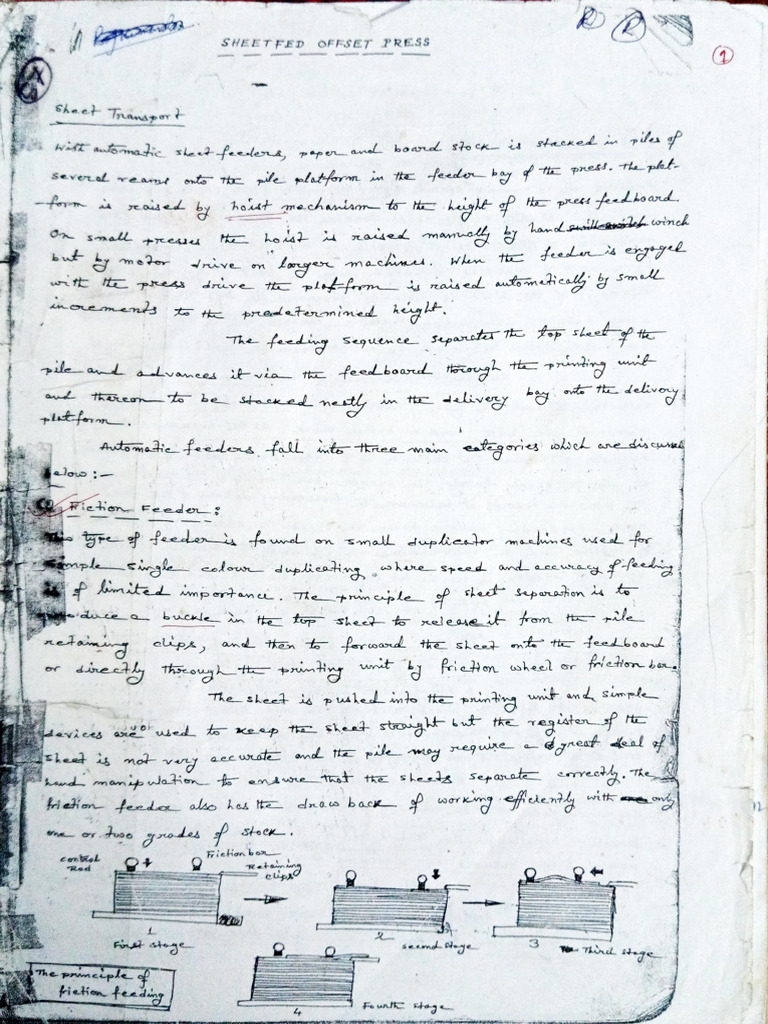 SHEETFED OFFSET PRESS
1
Sheet Transport
With automatic sheet feeders, paper and board stock is stacked in piles of
several reams onto the pile platform in the feeder bay of the press. The plat-
-form is raised by hoist mechanism to the height of the press feedboard.
On small presses the hoist is raised manually by hand winch
but by motor drive on larger machines. When the feeder is engaged
with the press drive the platform is raised automatically by small
increments to the predetermined height.
The feeding sequence separates the top sheet of the
pile and advances it via the feedboard through the printing unit
and thereon to be stacked neatly in the delivery bay onto the delivery
platform.
Automatic feeders fall into three main categories which are discussed
below :-
Friction Feeder :
This type of feeder is found on small duplicator machines used for
simple single colour duplicating where speed and accuracy of feeding
is of limited importance. The principle of sheet separation is to
produce a buckle in the top sheet to release it from the pile
retaining clips, and then to forward the sheet onto the feedboard
or directly through the printing unit by friction wheel or friction bar.
The sheet is pushed into the printing unit and simple
devices are used to keep the sheet straight but the register of the
sheet is not very accurate and the pile may require a great deal of
hand manipulation to ensure that the sheets separate correctly. The
friction feeder also has the draw back of working efficiently with only
one or two grades of stock.
control Rod
Friction bar
Retaining clips
1
First stage
2
second stage
3
Third stage
4
Fourth stage
The principle of
friction feeding